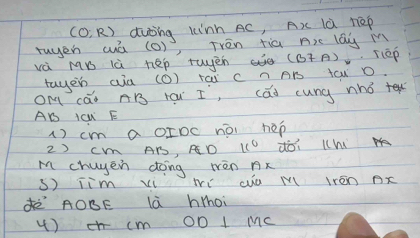 (O,R) đường kính AC, Ax là tiếp
tuyến của (O), Trên tia Ax lấy M
và MB là tiếp tuyến (B≠A). Tiếp
tuyến của (O) tại C ∩ AB tại D.
OM cắt AB tại I, cắt cung nhỏ
AB tại E
1) cm OIDC nội tiếp
2) cm AB, AD ko đổi khi
M chuyển động trên Ax
3) Tìm vị trí của M trên Ax
để AOBE là hthoi
4) cm OD ⊥ MC